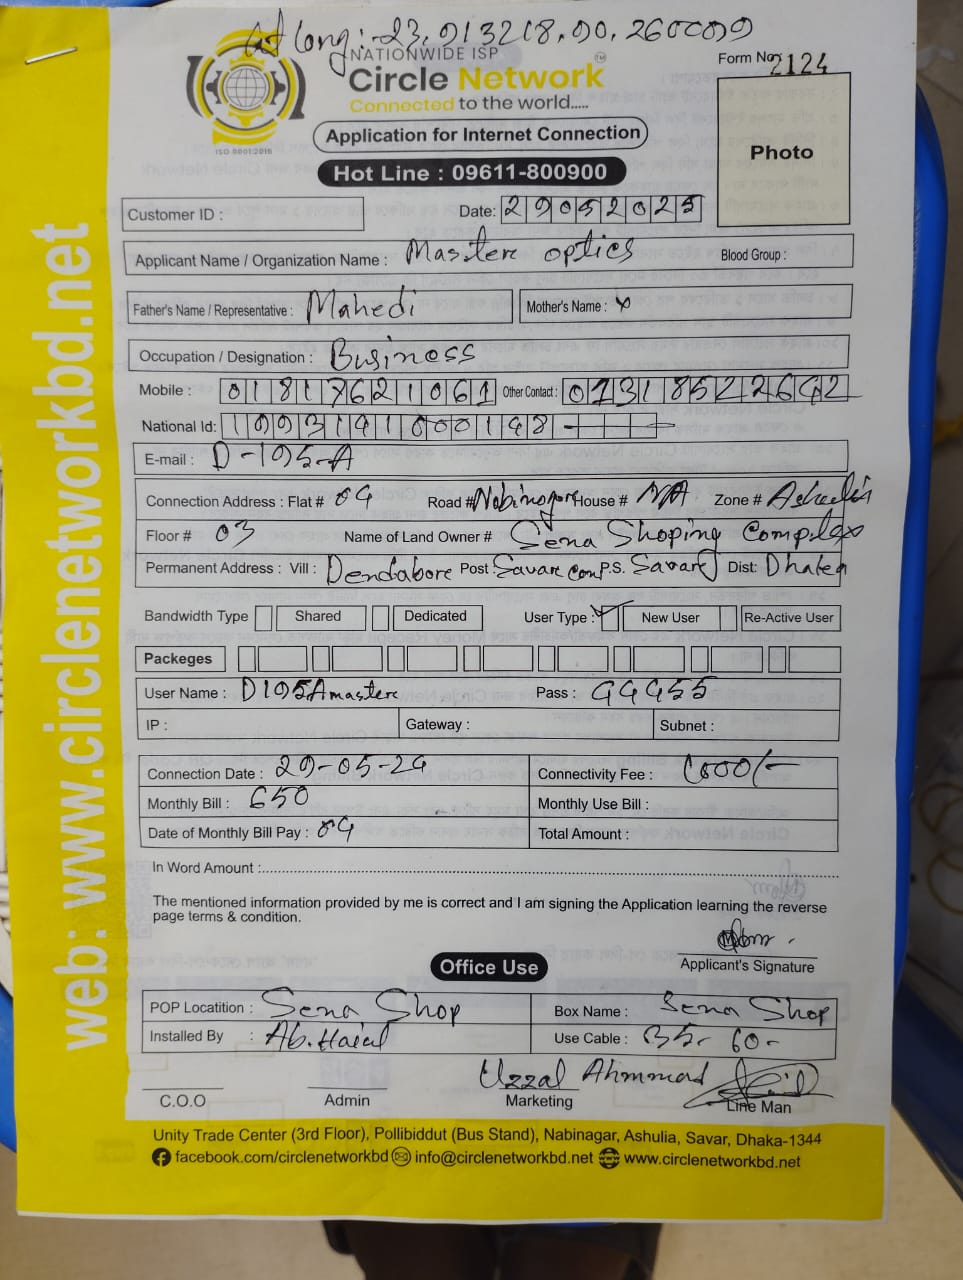 Lat Long :- 23.913218,90.260009
NATIONWIDE ISP
Circle Network TM
Connected to the world.....
ISO 9001:2015
Form No: 2124
Application for Internet Connection
Hot Line : 09611-800900
Photo
web: www.circlenetworkbd.net
Customer ID :
Date: 29052025
Applicant Name / Organization Name : Master optics
Blood Group :
Father's Name / Representative : Mahedi
Mother's Name : x
Occupation / Designation : Business
Mobile : 01817621061 Other Contact :
National Id:
E-mail : D-195-A
Connection Address : Flat # 04 Road # Nobinogore House # N/A Zone # Ashulia
Floor # 03 Name of Land Owner # Sena Shoping Complex
Permanent Address : Vill : Dendabore Post : Savar Can P.S. Savar Dist: Dhaka
Bandwidth Type Shared Dedicated User Type : New User Re-Active User
Packeges
User Name : D195Amaster Pass : 44455
IP : Gateway : Subnet :
Connection Date : 29-05-24 Connectivity Fee : 1000/-
Monthly Bill : 650 Monthly Use Bill :
Date of Monthly Bill Pay : 04 Total Amount :
In Word Amount :
The mentioned information provided by me is correct and I am signing the Application learning the reverse
page terms & condition.
Applicant's Signature
Office Use
POP Locatition : Sena Shop Box Name : Sena Shop
Installed By : Ab. Halal Use Cable : 35- 60-
Uzzal Ahmmad
C.O.O Admin Marketing Line Man
Unity Trade Center (3rd Floor), Pollibiddut (Bus Stand), Nabinagar, Ashulia, Savar, Dhaka-1344
facebook.com/circlenetworkbd info@circlenetworkbd.net www.circlenetworkbd.net